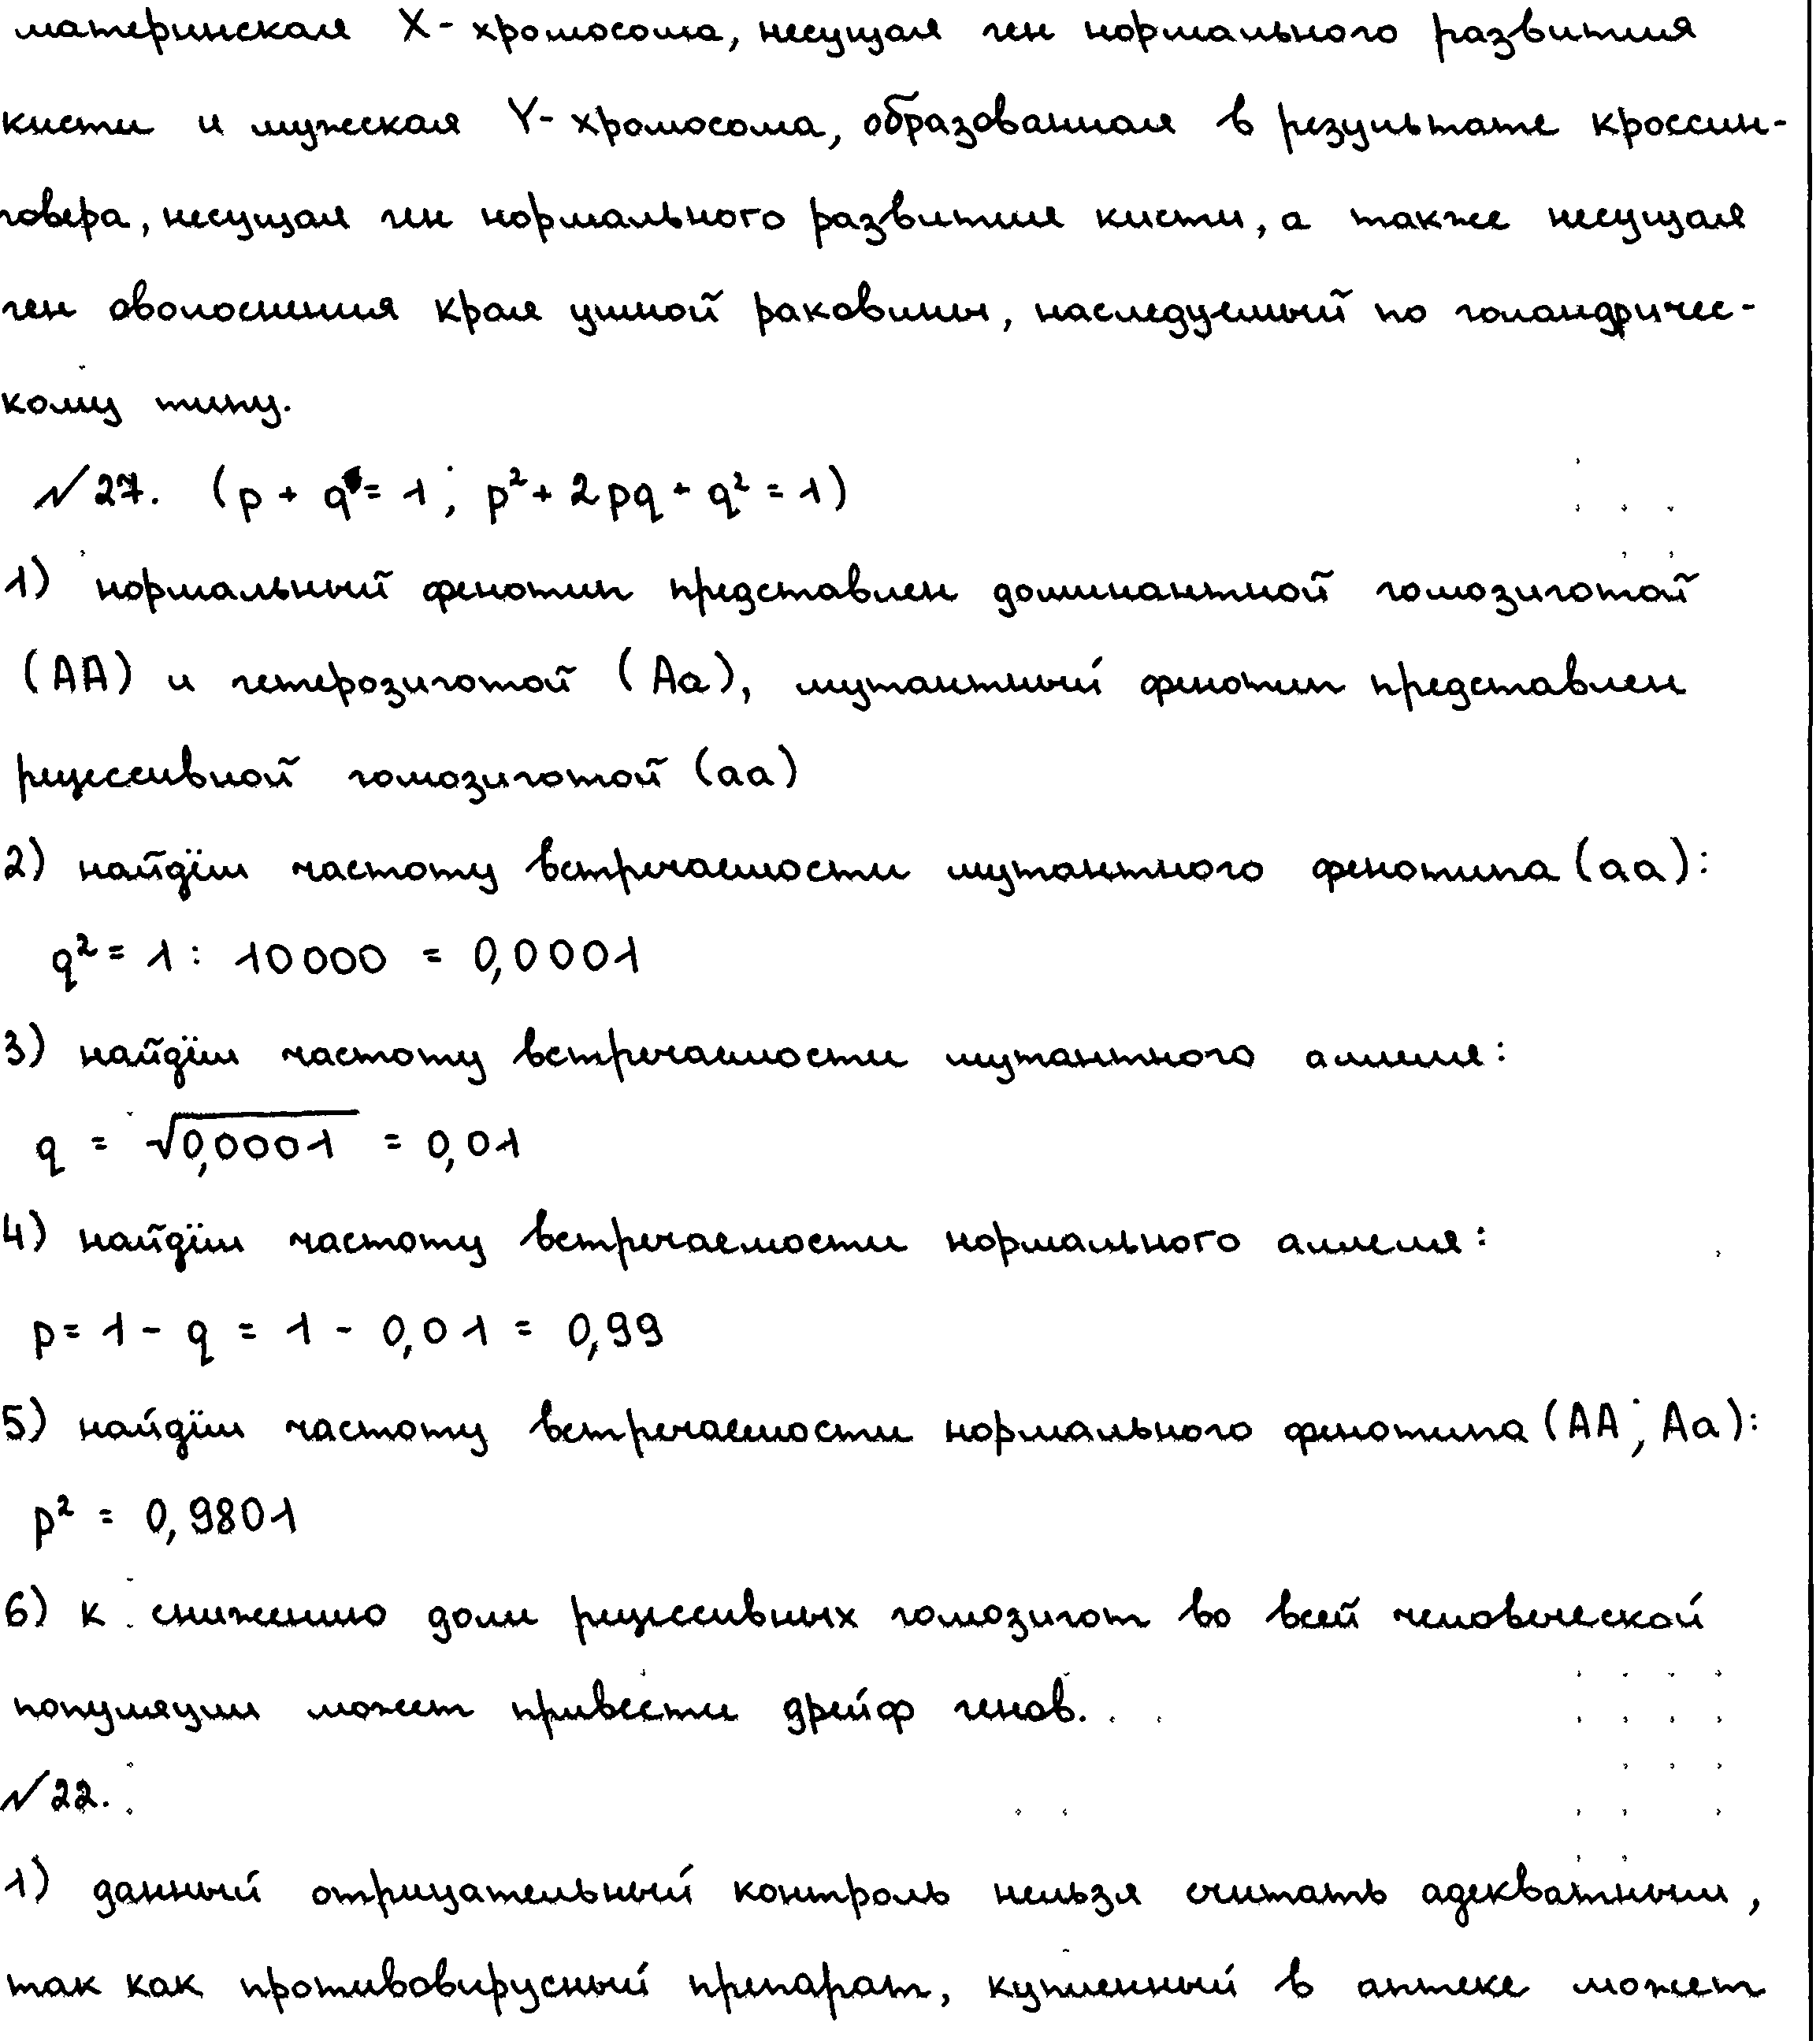 материнская X-хромосома, несущая ген нормального развития
кисти и мужская Y-хромосома, образованная в результате кроссин-
говера, несущая ген нормального развития кисти, а также несущая
ген оволоснения края ушной раковины, наследуемый по голандричес-
кому типу.
№27. (p + q = 1; p² + 2pq + q² = 1)
1) нормальный фенотип представлен доминантной гомозиготой
(AA) и гетерозиготой (Aa), мутантный фенотип представлен
рецессивной гомозиготой (aa)
2) найдём частоту встречаемости мутантного фенотипа (aa):
q² = 1 : 10000 = 0,0001
3) найдём частоту встречаемости мутантного аллеля:
q = √0,0001 = 0,01
4) найдём частоту встречаемости нормального аллеля:
p = 1 - q = 1 - 0,01 = 0,99
5) найдём частоту встречаемости нормального фенотипа (AA; Aa):
p² = 0,9801
6) к снижению доли рецессивных гомозигот во всей человеческой
популяции может привести дрейф генов.
№22.
1) данный отрицательный контроль нельзя считать адекватным,
так как противовирусный препарат, купленный в аптеке может